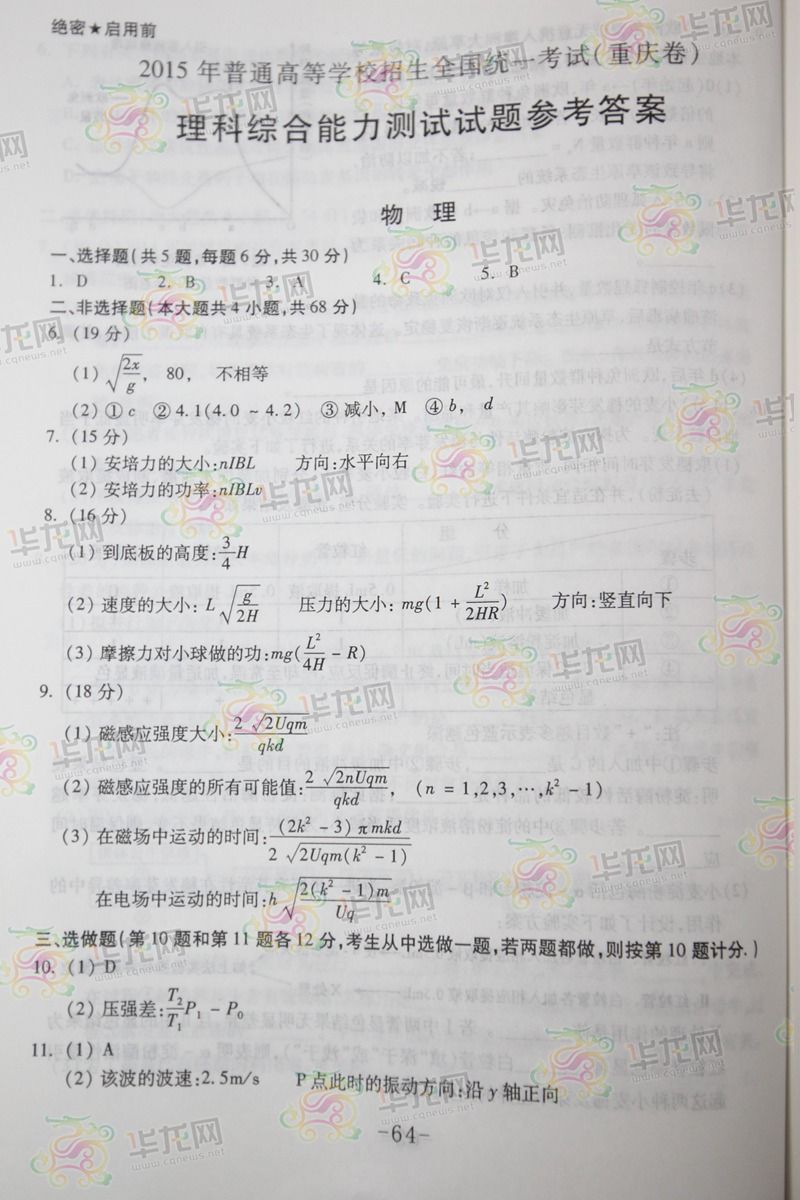 绝密★启用前
2015年普通高等学校招生全国统一考试(重庆卷)
理科综合能力测试试题参考答案
物 理
一、选择题(共5题,每题6分,共30分)
1. D 2. B 3. A 4. C 5. B
二、非选择题(本大题共4小题,共68分)
6. (19分)
(1) √(2x/g), 80, 不相等
(2) ① c ② 4.1(4.0 ~ 4.2) ③ 减小, M ④ b, d
7. (15分)
(1) 安培力的大小:nIBL 方向:水平向右
(2) 安培力的功率:nIBLv
8. (16分)
(1) 到底板的高度:3/4 H
(2) 速度的大小: L√(g/2H) 压力的大小: mg(1 + L²/2HR) 方向:竖直向下
(3) 摩擦力对小球做的功:mg(L²/4H - R)
9. (18分)
(1) 磁感应强度大小:2√(2Uqm)/qkd
(2) 磁感应强度的所有可能值:2√(2nUqm)/qkd, (n = 1,2,3,…,k² - 1)
(3) 在磁场中运动的时间:(2k² - 3)πmkd/2√(2Uqm(k² - 1))
在电场中运动的时间:h√(2(k² - 1)m/Uq)
三、选做题(第10题和第11题各12分,考生从中选做一题,若两题都做,则按第10题计分.)
10. (1) D
(2) 压强差:T₂/T₁ P₁ - P₀
11. (1) A
(2) 该波的波速:2.5m/s P点此时的振动方向:沿y轴正向
-64-
华龙网
www.cqnews.net